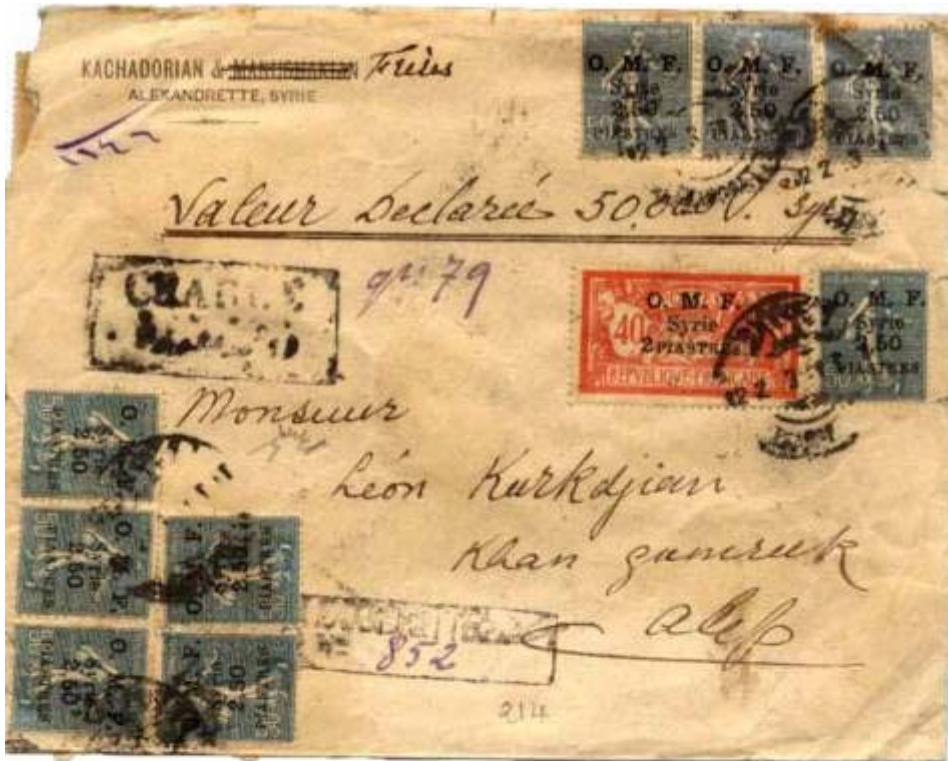 KACHADORIAN & MANUSHAKIAN Frères
ALEXANDRETTE, SYRIE
O. M. F.
Syrie
2.50
PIASTRES
O. M. F.
Syrie
2.50
PIASTRES
O. M. F.
Syrie
2.50
PIASTRES
Valeur Declarée 50.000
CHARGE
gr. 79
O. M. F.
40
Syrie
2 PIASTRES
REPUBLIQUE FRANÇAISE
O. M. F.
Syrie
2.50
PIASTRES
Monsieur
Léon Kurkdjian
Khan gumruk
Alep
O. M. F.
Syrie
2.50
PIASTRES
O. M. F.
Syrie
2.50
PIASTRES
O. M. F.
Syrie
2.50
PIASTRES
O. M. F.
Syrie
2.50
PIASTRES
O. M. F.
Syrie
2.50
PIASTRES
852
214